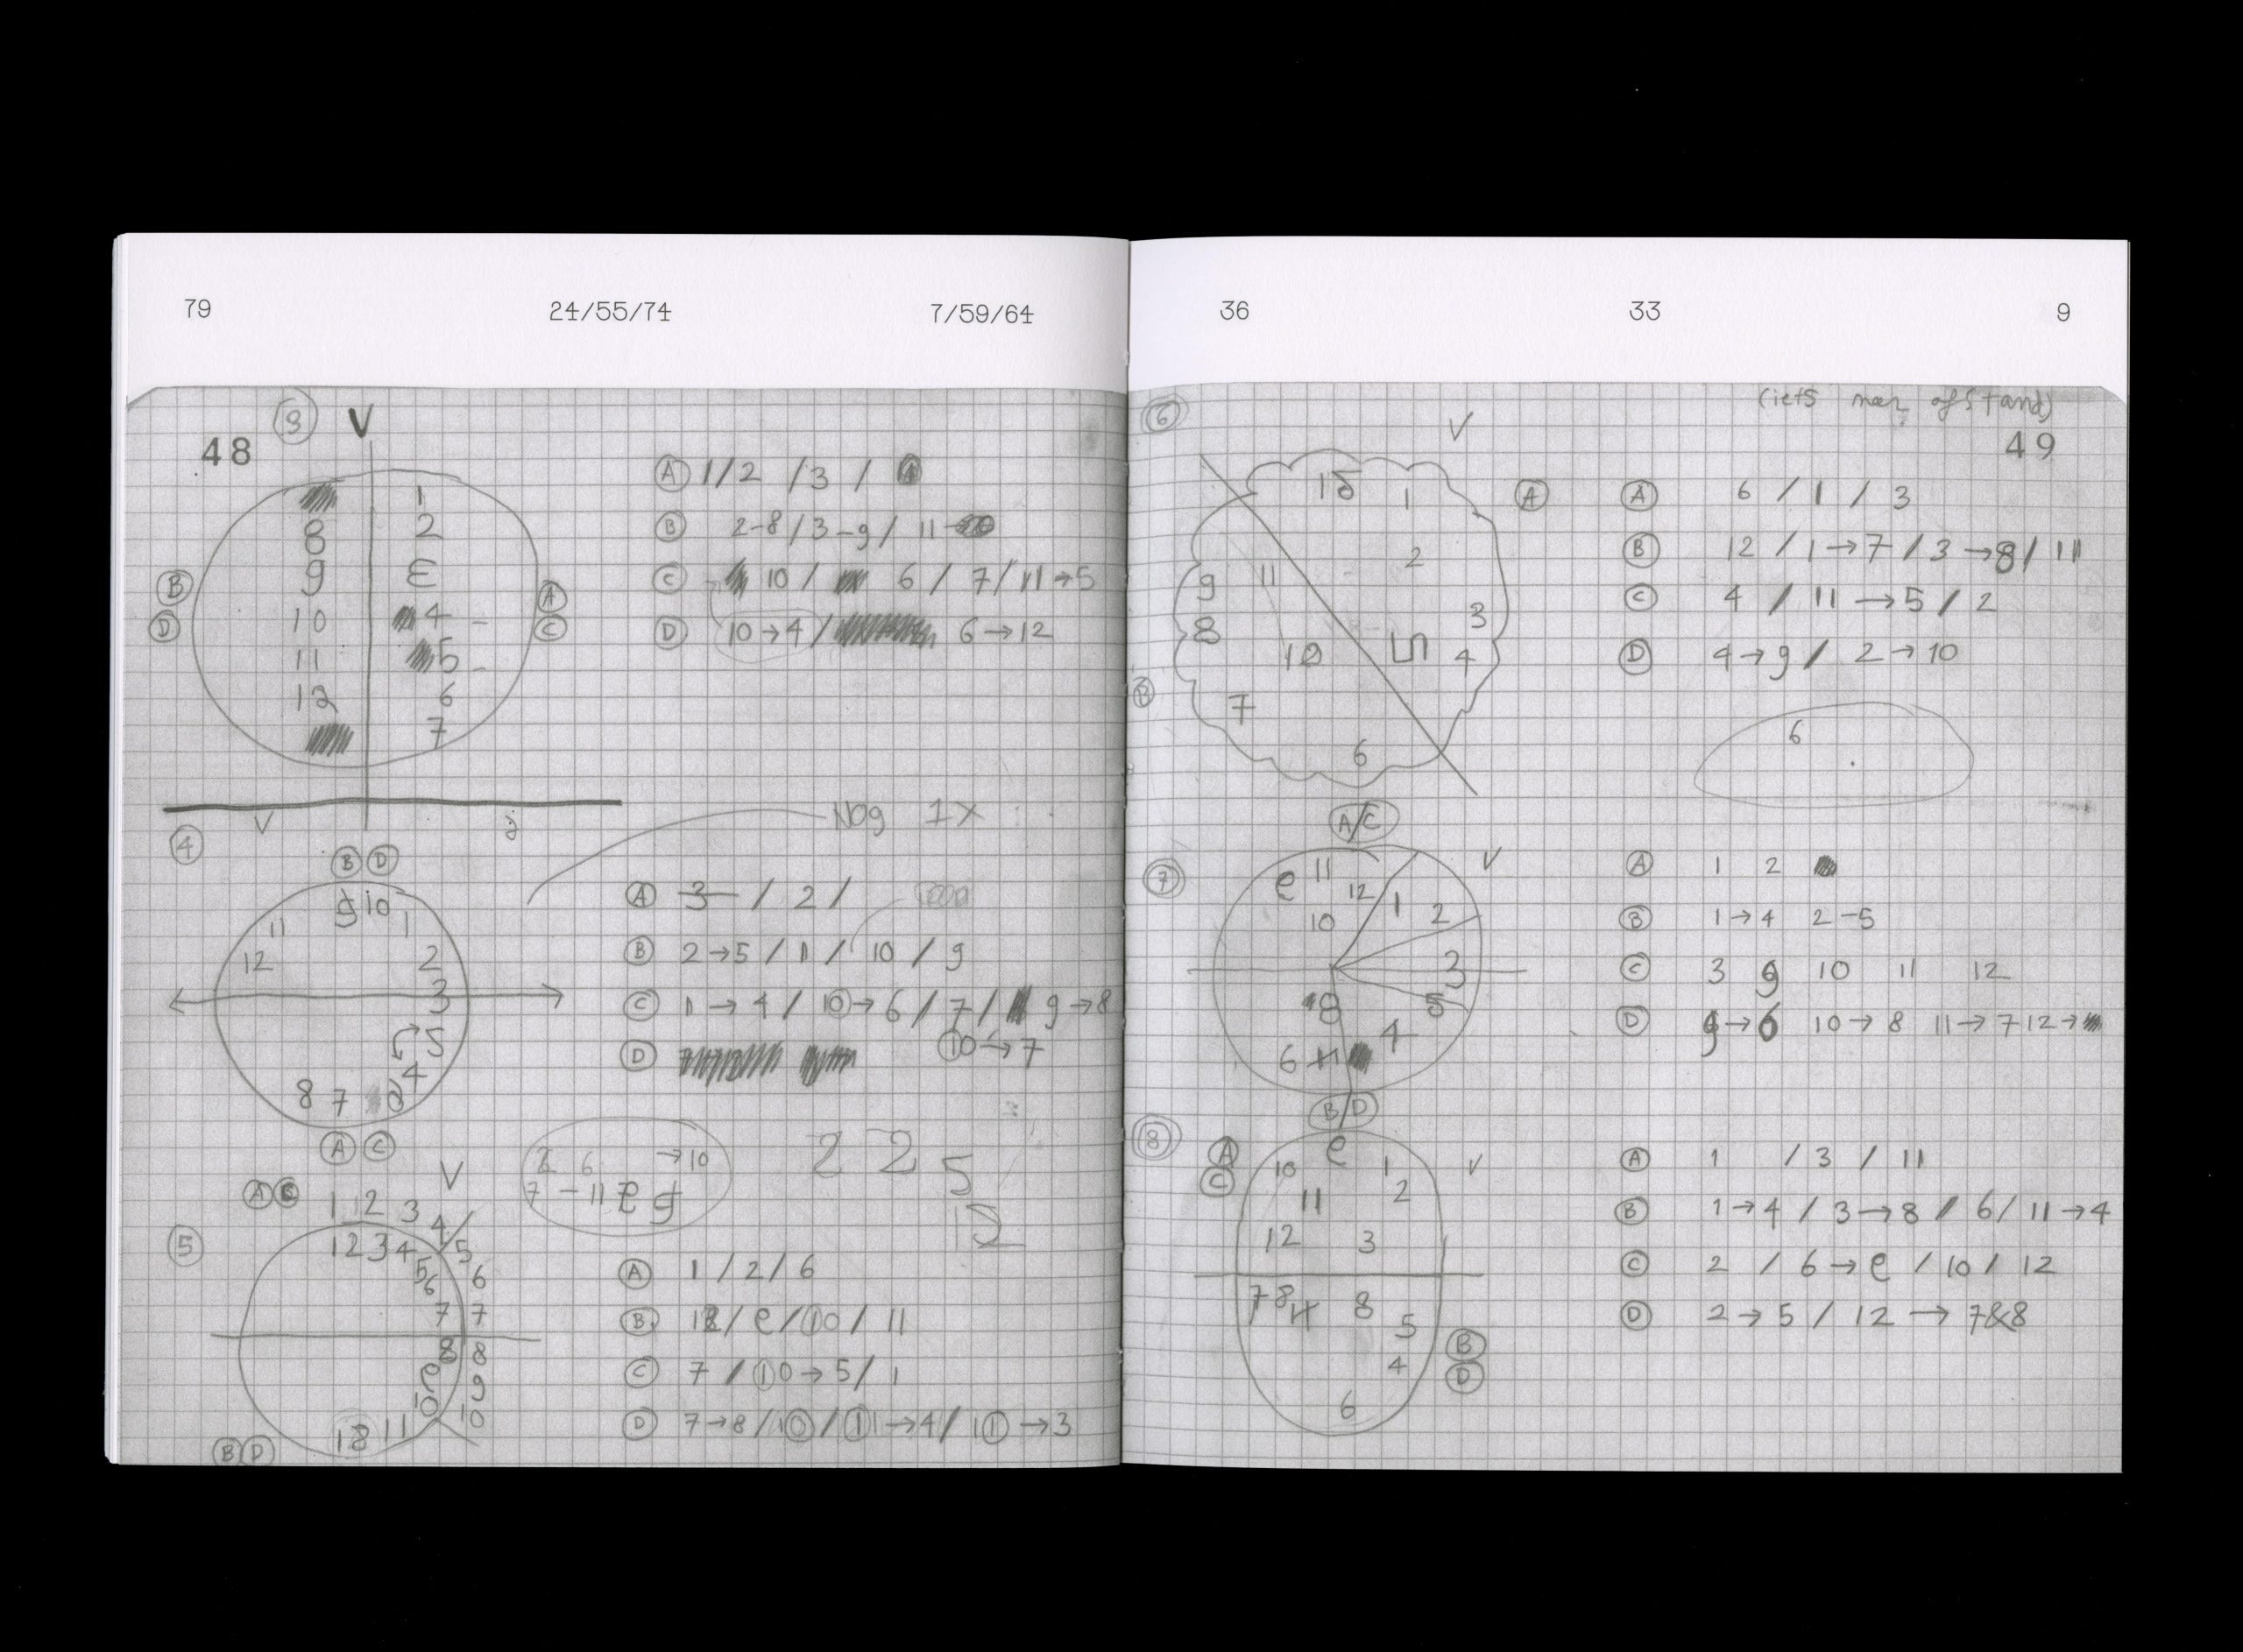 79 24/55/74 7/59/64
3 V
48
1
8 2
9 3
10 4 -
11 5 -
12 6
7
B D
A C
A 1/2 /3 /
B 2-8/3-9/ 11
C 10 / 6 / 7/11→5
D 10→4/ 6→12
V
4
B D
9 10
11 1
12 2
3
5
4
8 7
A C
Nog 1x
A 3 / 2 /
B 2→5 / 1 / 10 / 9
C 1→4 / 10→6 / 7 / 9→8
D 10→7
6 →10
7 - 11
2 2 5
12
5
A C
V
1 2 3 4 5 6 7 8 9 10
1 2 3 4 5 6 7 8 e 10 11
B D
A 1/2/6
B 12/ e/10/ 11
C 7 / 10→5/ 1
D 7→8/10/11→4/ 11→3
36 33 9
(iets meer afstand)
49
6
V
1
2
3
4
5
6
7
8
9
10
11
A
B
A 6 / 1 / 3
B 12 / 1→7 / 3→8/ 11
C 4 / 11→5 / 2
D 4→9 / 2→10
6
A/C
7
V
e 11 12 1 2
10
3
8 5
4
6
B/D
A 1 2
B 1→4 2-5
C 3 9 10 11 12
D 9→6 10→8 11→7 12→
8
A C
V
10 e 1
11 2
12 3
7 8 8 5
4
6
B D
A 1 / 3 / 11
B 1→4 / 3→8 / 6/ 11→4
C 2 / 6→e / 10/ 12
D 2→5 / 12→7&8